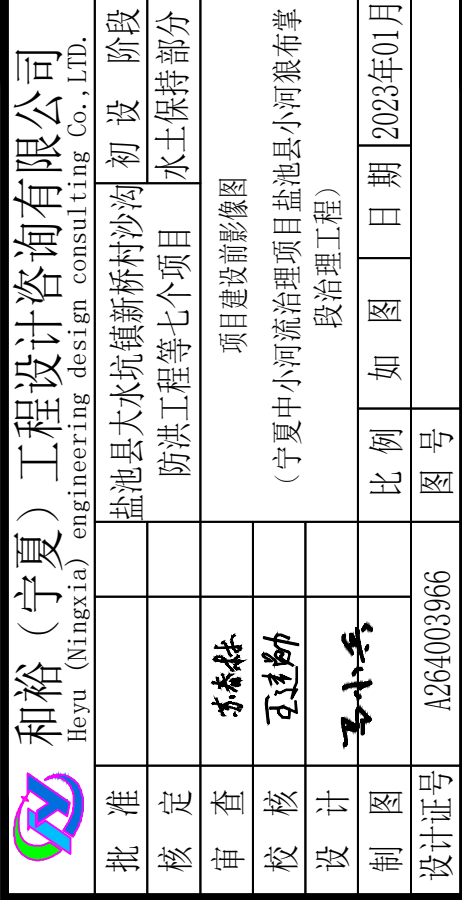 和裕（宁夏）工程设计咨询有限公司
Heyu (Ningxia) engineering design consulting Co.,LTD.
批 准
盐池县大水坑镇新桥村沙沟
防洪工程等七个项目
初 设 阶段
水土保持 部分
核 定
审 查
苏春林
项目建设前影像图
（宁夏中小河流治理项目盐池县小河狼布掌
段治理工程）
校 核
王建勋
设 计
马小兵
制 图
比 例
如 图
日 期
2023年01月
设计证号
A264003966
图 号